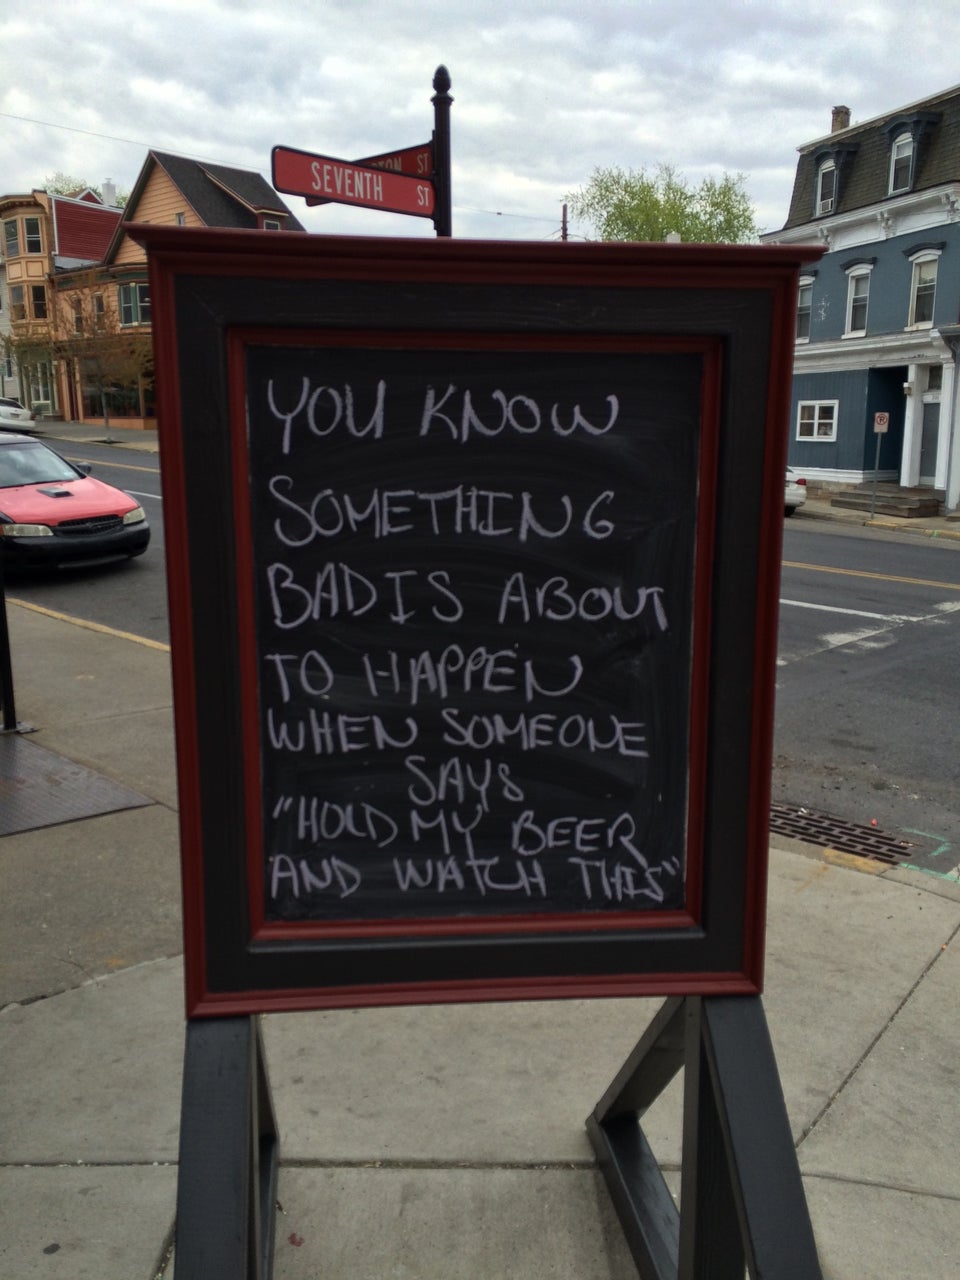 SEVENTH ST
ST
YOU KNOW
SOMETHING
BAD IS ABOUT
TO HAPPEN
WHEN SOMEONE
SAYS
"HOLD MY BEER
AND WATCH THIS"